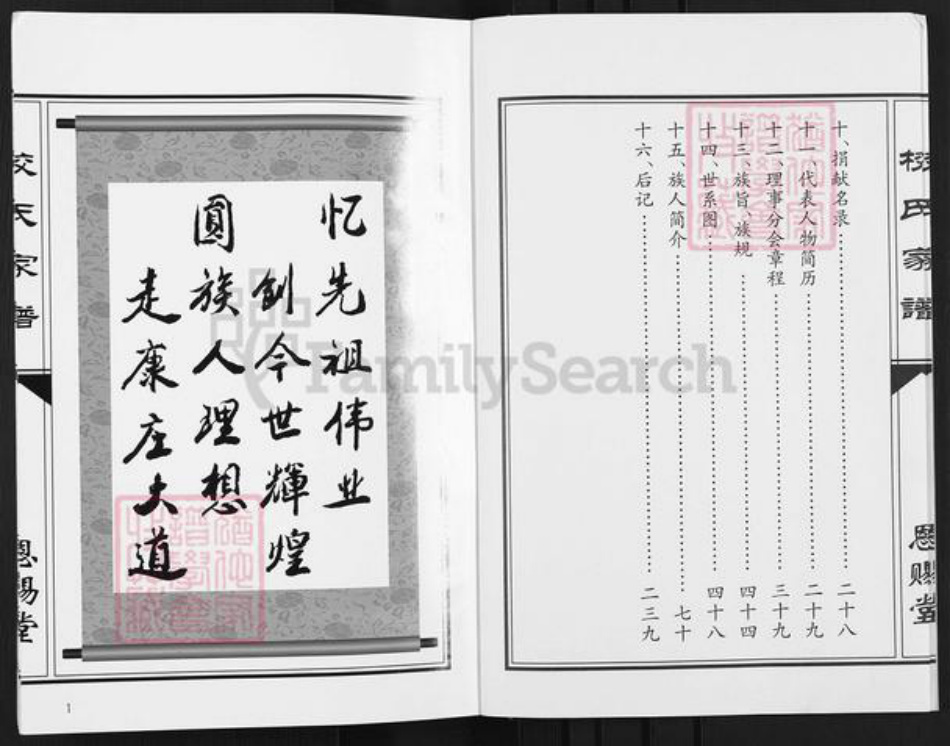 氏家譜
恩赐堂
十、捐献名录……二十八
十一、代表人物简历……二十九
十二、理事分会章程……三十九
十三、族旨、族规……四十四
十四、世系图……四十八
十五、族人简介……七十
十六、后记……二三九
忆先祖伟业
创今世輝煌
圆族人理想
走康庄大道
氏家譜
恩赐堂
1
FamilySearch